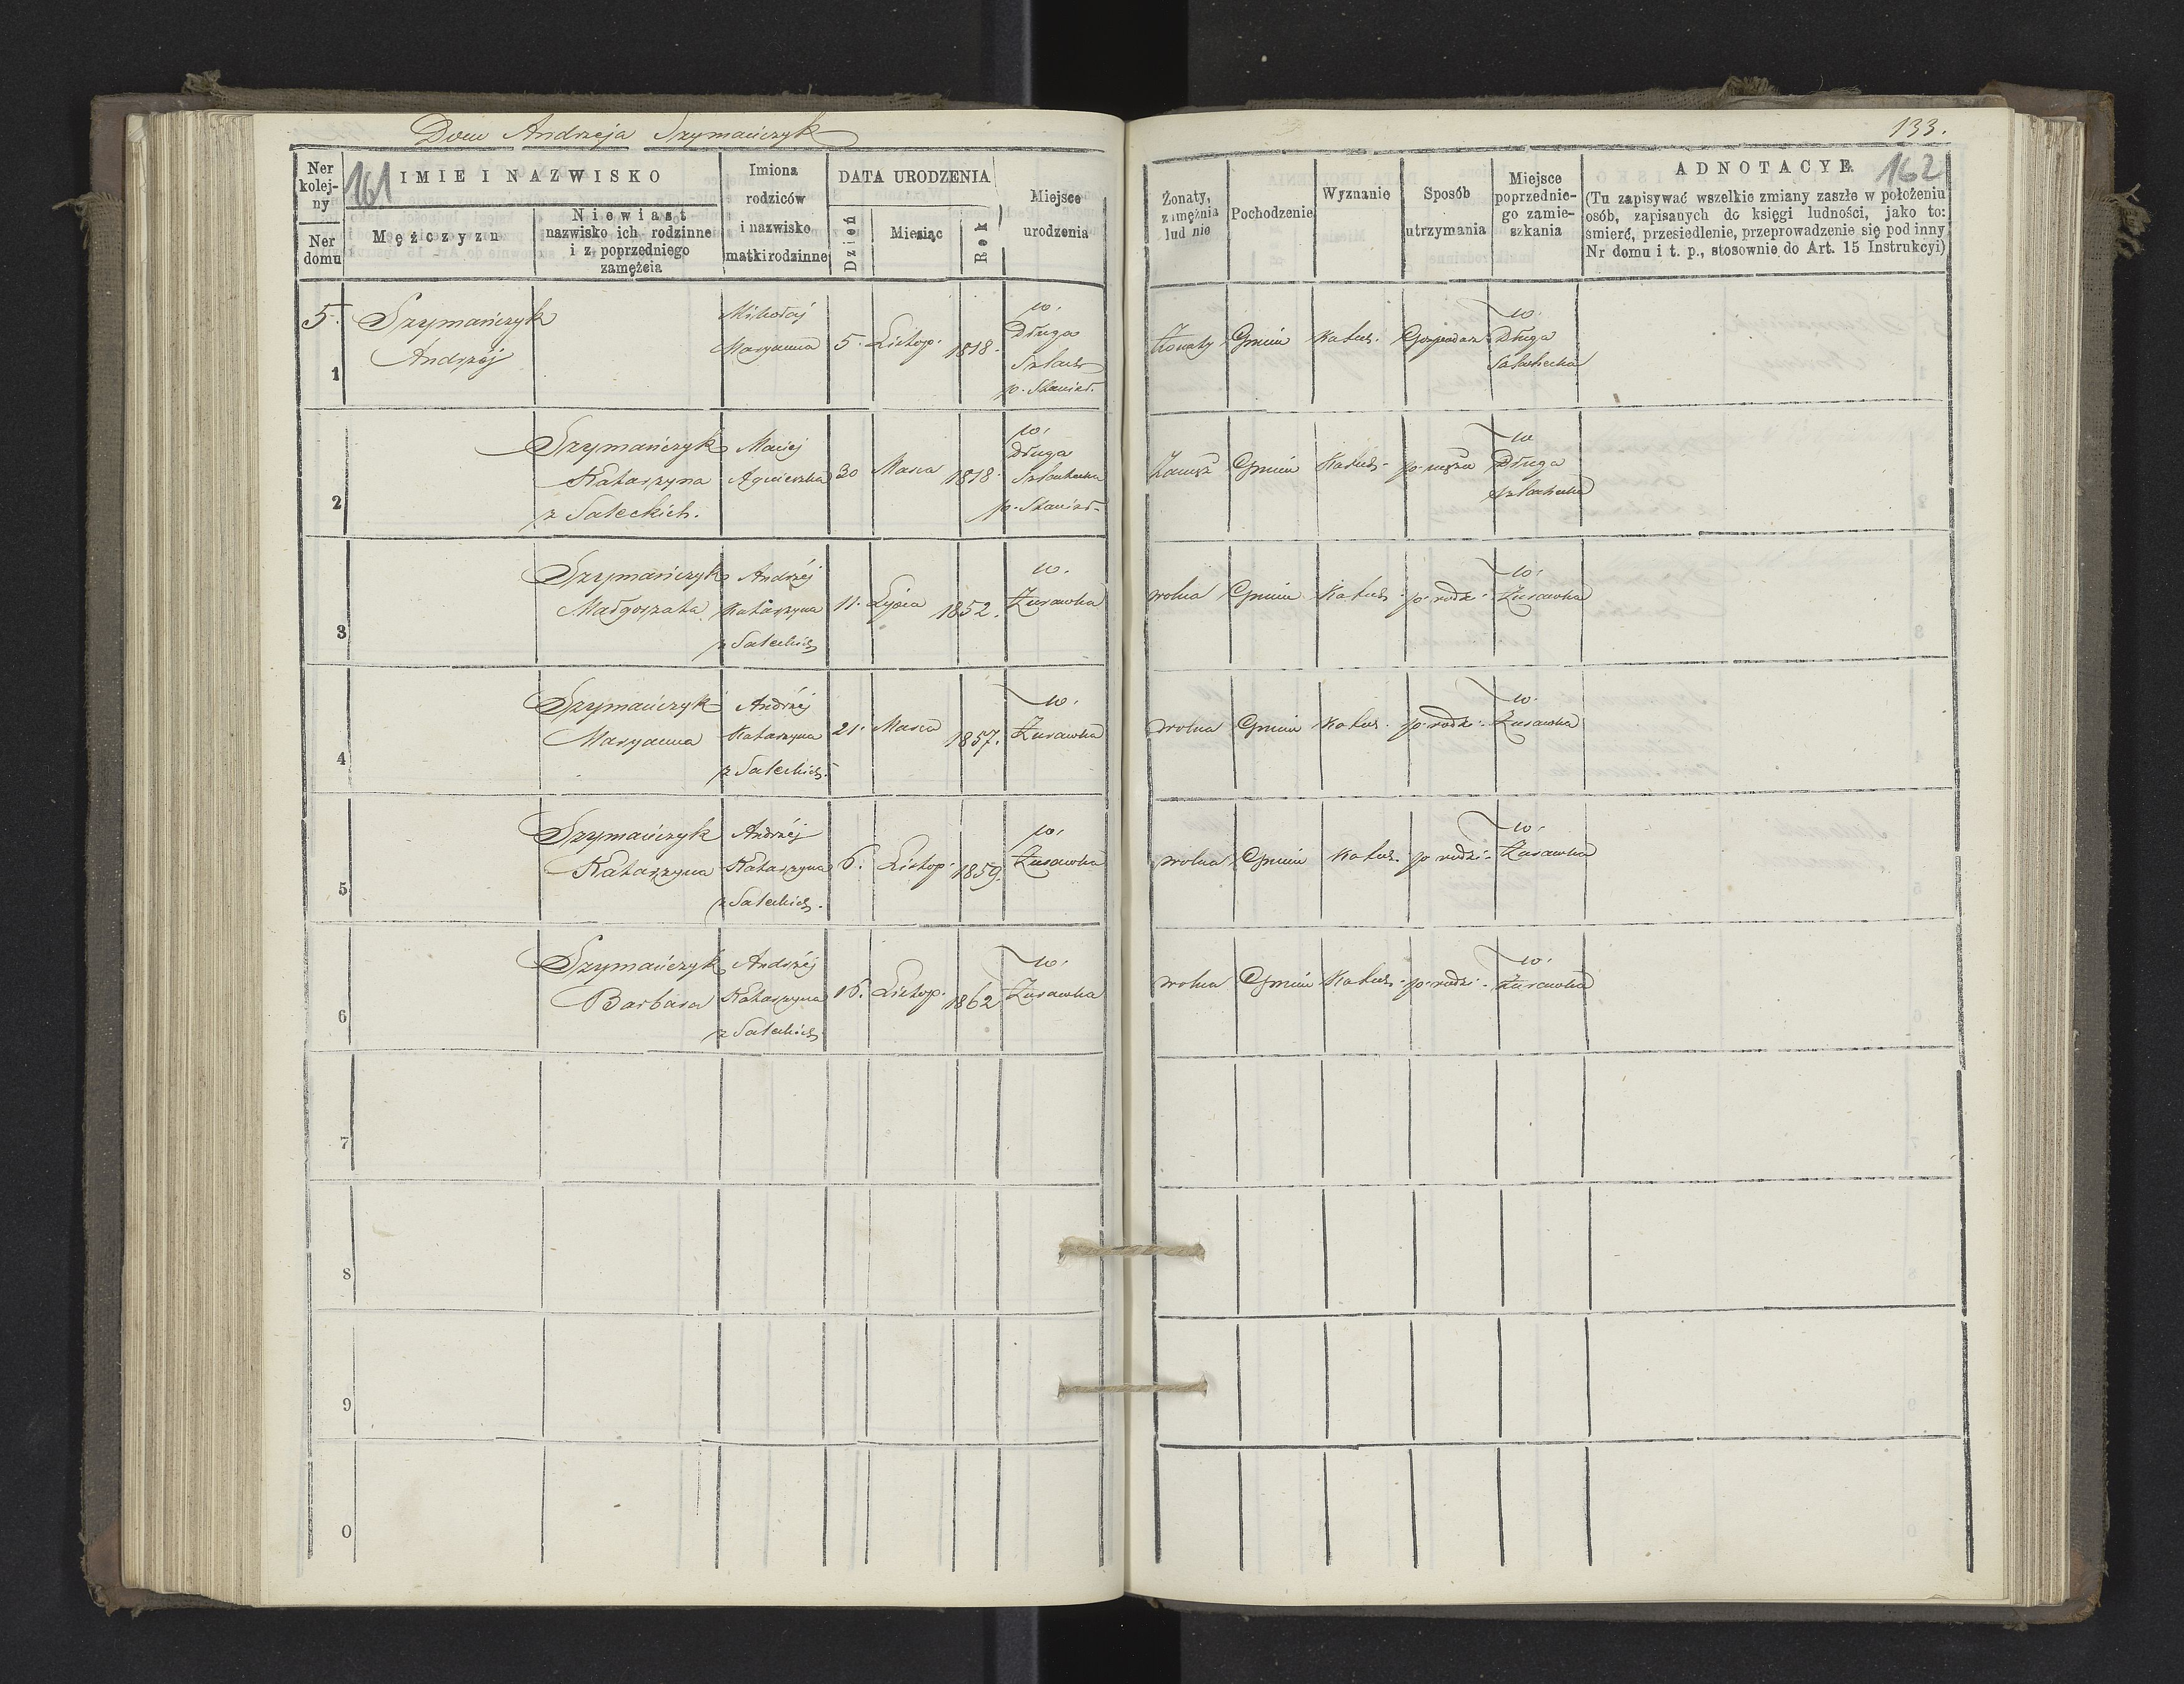 Dom Andrzeja Szymańczyk
133.
161
162
Ner kolejny
Ner domu
IMIE I NAZWISKO
Mężczyzn
Niewiast
nazwisko ich rodzinne
i z poprzedniego
zamężcia
Imiona
rodziców
i nazwisko
matki rodzinne
DATA URODZENIA
Dzień
Miesiąc
Rok
Miejsce
urodzenia
Żonaty,
zamężnia
lud nie
Pochodzenie
Wyznanie
Sposób
utrzymania
Miejsce
poprzednie-
go zamie-
szkania
ADNOTACYE
(Tu zapisywać wszelkie zmiany zaszłe w położeniu
osób, zapisanych do księgi ludności, jako to:
śmierć, przesiedlenie, przeprowadzenie się pod inny
Nr domu i t. p., stosownie do Art. 15 Instrukcyi)
5. 1 Szymańczyk Andrzéj Mikołaj Maryanna 5. Listop. 1818. w. Długa Szlach p. Stanisł. Żonaty Gmin Katol. Gospodarz w. Długa Szlachecka
2 Szymańczyk Katarzyna z Sałeckich. Maciej Agnieszka 30 Marca 1818. w. Długa Szlachecka p. Stanisł. Zamęż Gmin Katol. po mężu w Długa Szlachecka
3 Szymańczyk Małgorzata Andrzéj Katarzyna z Sałeckich 11. Lipca 1852. w. Żurawka wolna Gmin Katol. po rodz. w. Żurawka
4 Szymańczyk Maryanna Andrzéj Katarzyna z Sałeckich 21. Marca 1857. w. Żurawka wolna Gmin Katol. po rodz. w. Żurawka
5 Szymańczyk Katarzyna Andrzéj Katarzyna z Sałeckich. 6. Listop. 1859. w. Żurawka wolna Gmin Katol. po rodzi. w. Żurawka
6 Szymańczyk Barbara Andrzéj Katarzyna z Sałeckich 16. Listop. 1862 w. Żurawka wolna Gmin Katol. po rodzi. w. Żurawka
7
8
9
0